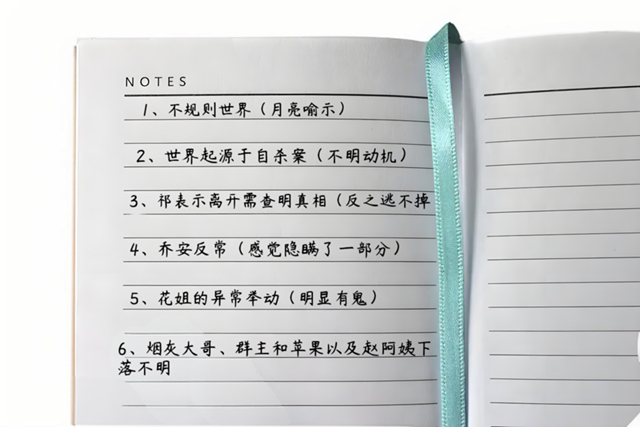 NOTES
1、不规则世界（月亮喻示）
2、世界起源于自杀案（不明动机）
3、祁表示离开需查明真相（反之逃不掉
4、乔安反常（感觉隐瞒了一部分）
5、花姐的异常举动（明显有鬼）
6、烟灰大哥、群主和苹果以及赵阿姨下
落不明